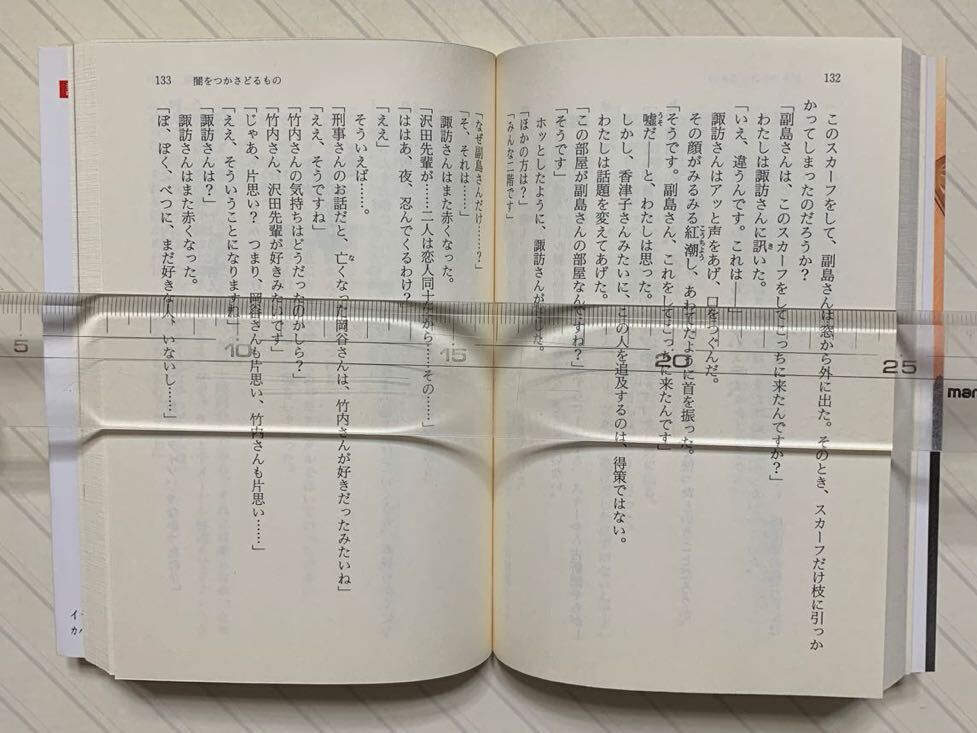 132
このスカーフをして、副島さんは窓から外に出た。そのとき、スカーフだけ枝に引っか
かってしまったのだろうか？
「副島さんは、このスカーフをしてこっちに来たんですか？」
わたしは諏訪さんに訊いた。
「いえ、違うんです。これは――」
諏訪さんはアッと声をあげ、口をつぐんだ。
その顔がみるみる紅潮し、あわてたように首を振った。
「そうです。副島さん、これをしてこっちに来たんです」
嘘だ――と、わたしは思った。
しかし、香津子さんみたいに、この人を追及するのは、得策ではない。
わたしは話題を変えてあげた。
「この部屋が副島さんの部屋なんですね？」
「そうです」
ホッとしたように、諏訪さんが応じた。
「ほかの方は？」
「みんな二階です」
133 闇をつかさどるもの
「なぜ副島さんだけ……？」
「そ、それは……」
諏訪さんはまた赤くなった。
「沢田先輩が……二人は恋人同士だから……その……」
「ははあ、夜、忍んでくるわけ？」
「ええ」
そういえば……。
「刑事さんのお話だと、亡くなった岡谷さんは、竹内さんが好きだったみたいね」
「ええ、そうですね」
「竹内さんの気持ちはどうだったのかしら？」
「竹内さん、沢田先輩が好きみたいです」
「じゃあ、片思い？　つまり、岡谷さんも片思い、竹内さんも片思い……」
「ええ、そういうことになりますね」
「諏訪さんは？」
諏訪さんはまた赤くなった。
「ぼ、ぼく、べつに、まだ好きな人、いないし……」
5
10
15
20
25